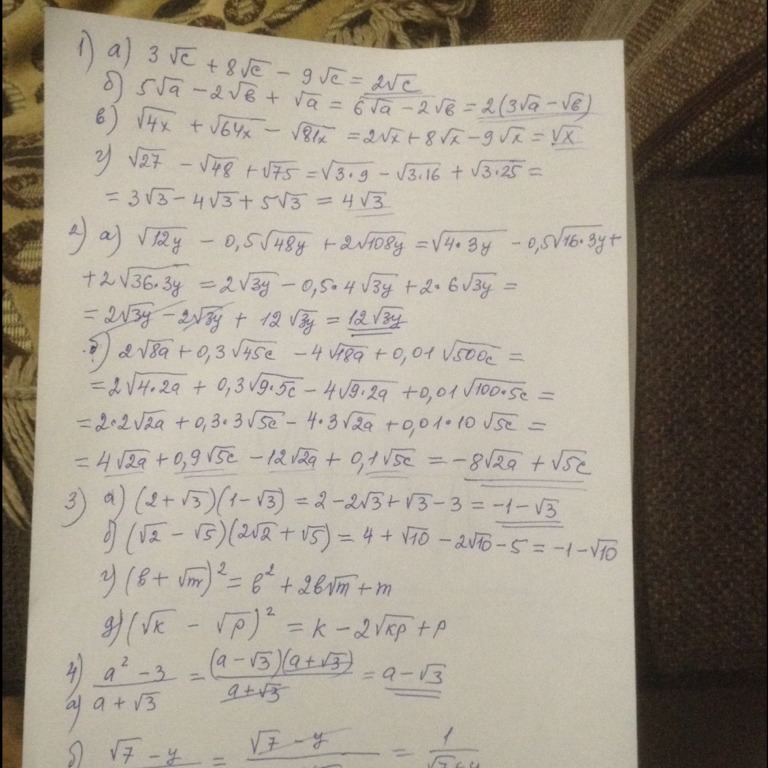 1) а) 3√c + 8√c − 9√c = 2√c
б) 5√a − 2√b + √a = 6√a − 2√b = 2(3√a − √b)
в) √4x + √64x − √81x = 2√x + 8√x − 9√x = √x
г) √27 − √48 + √75 = √3·9 − √3·16 + √3·25 =
= 3√3 − 4√3 + 5√3 = 4√3
2) а) √12y − 0,5√48y + 2√108y = √4·3y − 0,5√16·3y +
+ 2√36·3y = 2√3y − 0,5·4√3y + 2·6√3y =
= 2√3y − 2√3y + 12√3y = 12√3y
б) 2√8a + 0,3√45c − 4√18a + 0,01√500c =
= 2√4·2a + 0,3√9·5c − 4√9·2a + 0,01√100·5c =
= 2·2√2a + 0,3·3√5c − 4·3√2a + 0,01·10√5c =
= 4√2a + 0,9√5c − 12√2a + 0,1√5c = −8√2a + √5c
3) а) (2 + √3)(1 − √3) = 2 − 2√3 + √3 − 3 = −1 − √3
б) (√2 − √5)(2√2 + √5) = 4 + √10 − 2√10 − 5 = −1 − √10
г) (b + √m)² = b² + 2b√m + m
д) (√k − √p)² = k − 2√kp + p
4) а) (a² − 3)/(a + √3) = ((a − √3)(a + √3))/(a + √3) = a − √3
б) √7 − y = √7 − y = 1